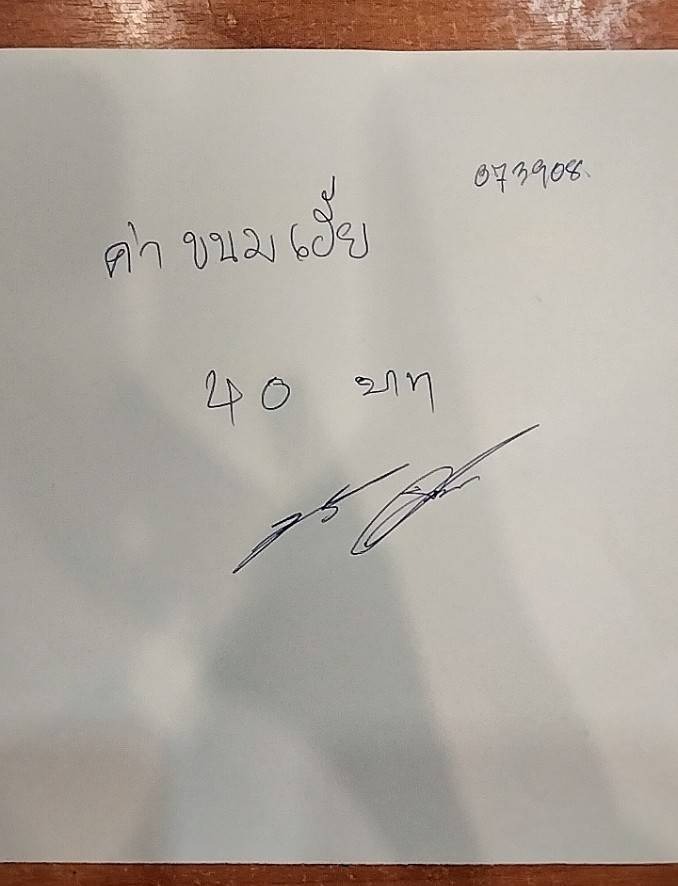 073908.
ค่า ขนม เฮี้ย
40 บาท